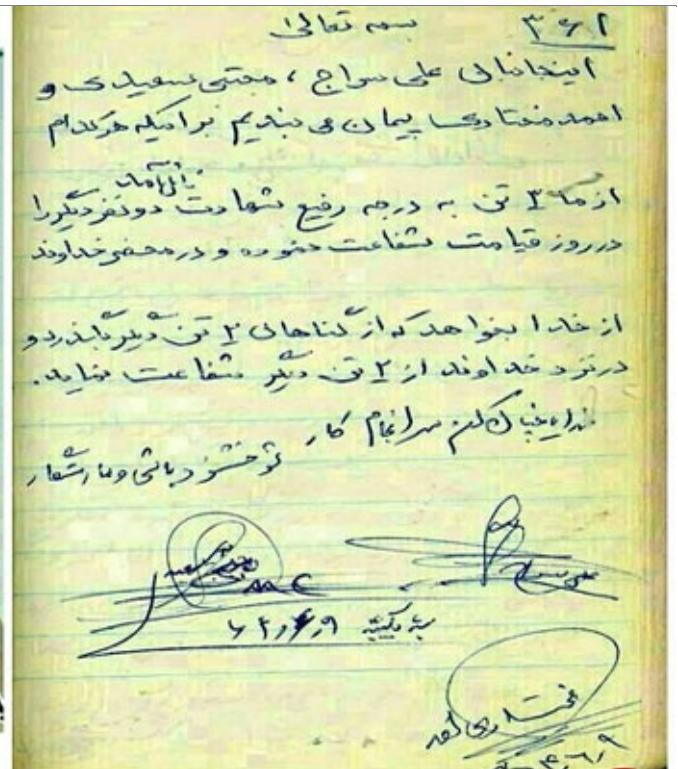 بسمه تعالی
اینجانبان علی سراج ، مجتبی سعیدی و
احمد مختاری پیمان می بندیم بر اینکه هرکدام
نائل آمدیم
از ما ۳ تن به درجه رفیع شهادت دو نفر دیگر را
در روز قیامت شفاعت نموده و در محضر خداوند
از خدا بخواهد که از گناهان ۲ تن دیگر بگذرد و
در نزد خداوند از ۲ تن دیگر شفاعت نماید.
خدایا چنان کن سرانجام کار
تو خشنود باشی و ما رستگار
علی سراج
یکشنبه ۶۴٫۶٫۹
مختاری احمد